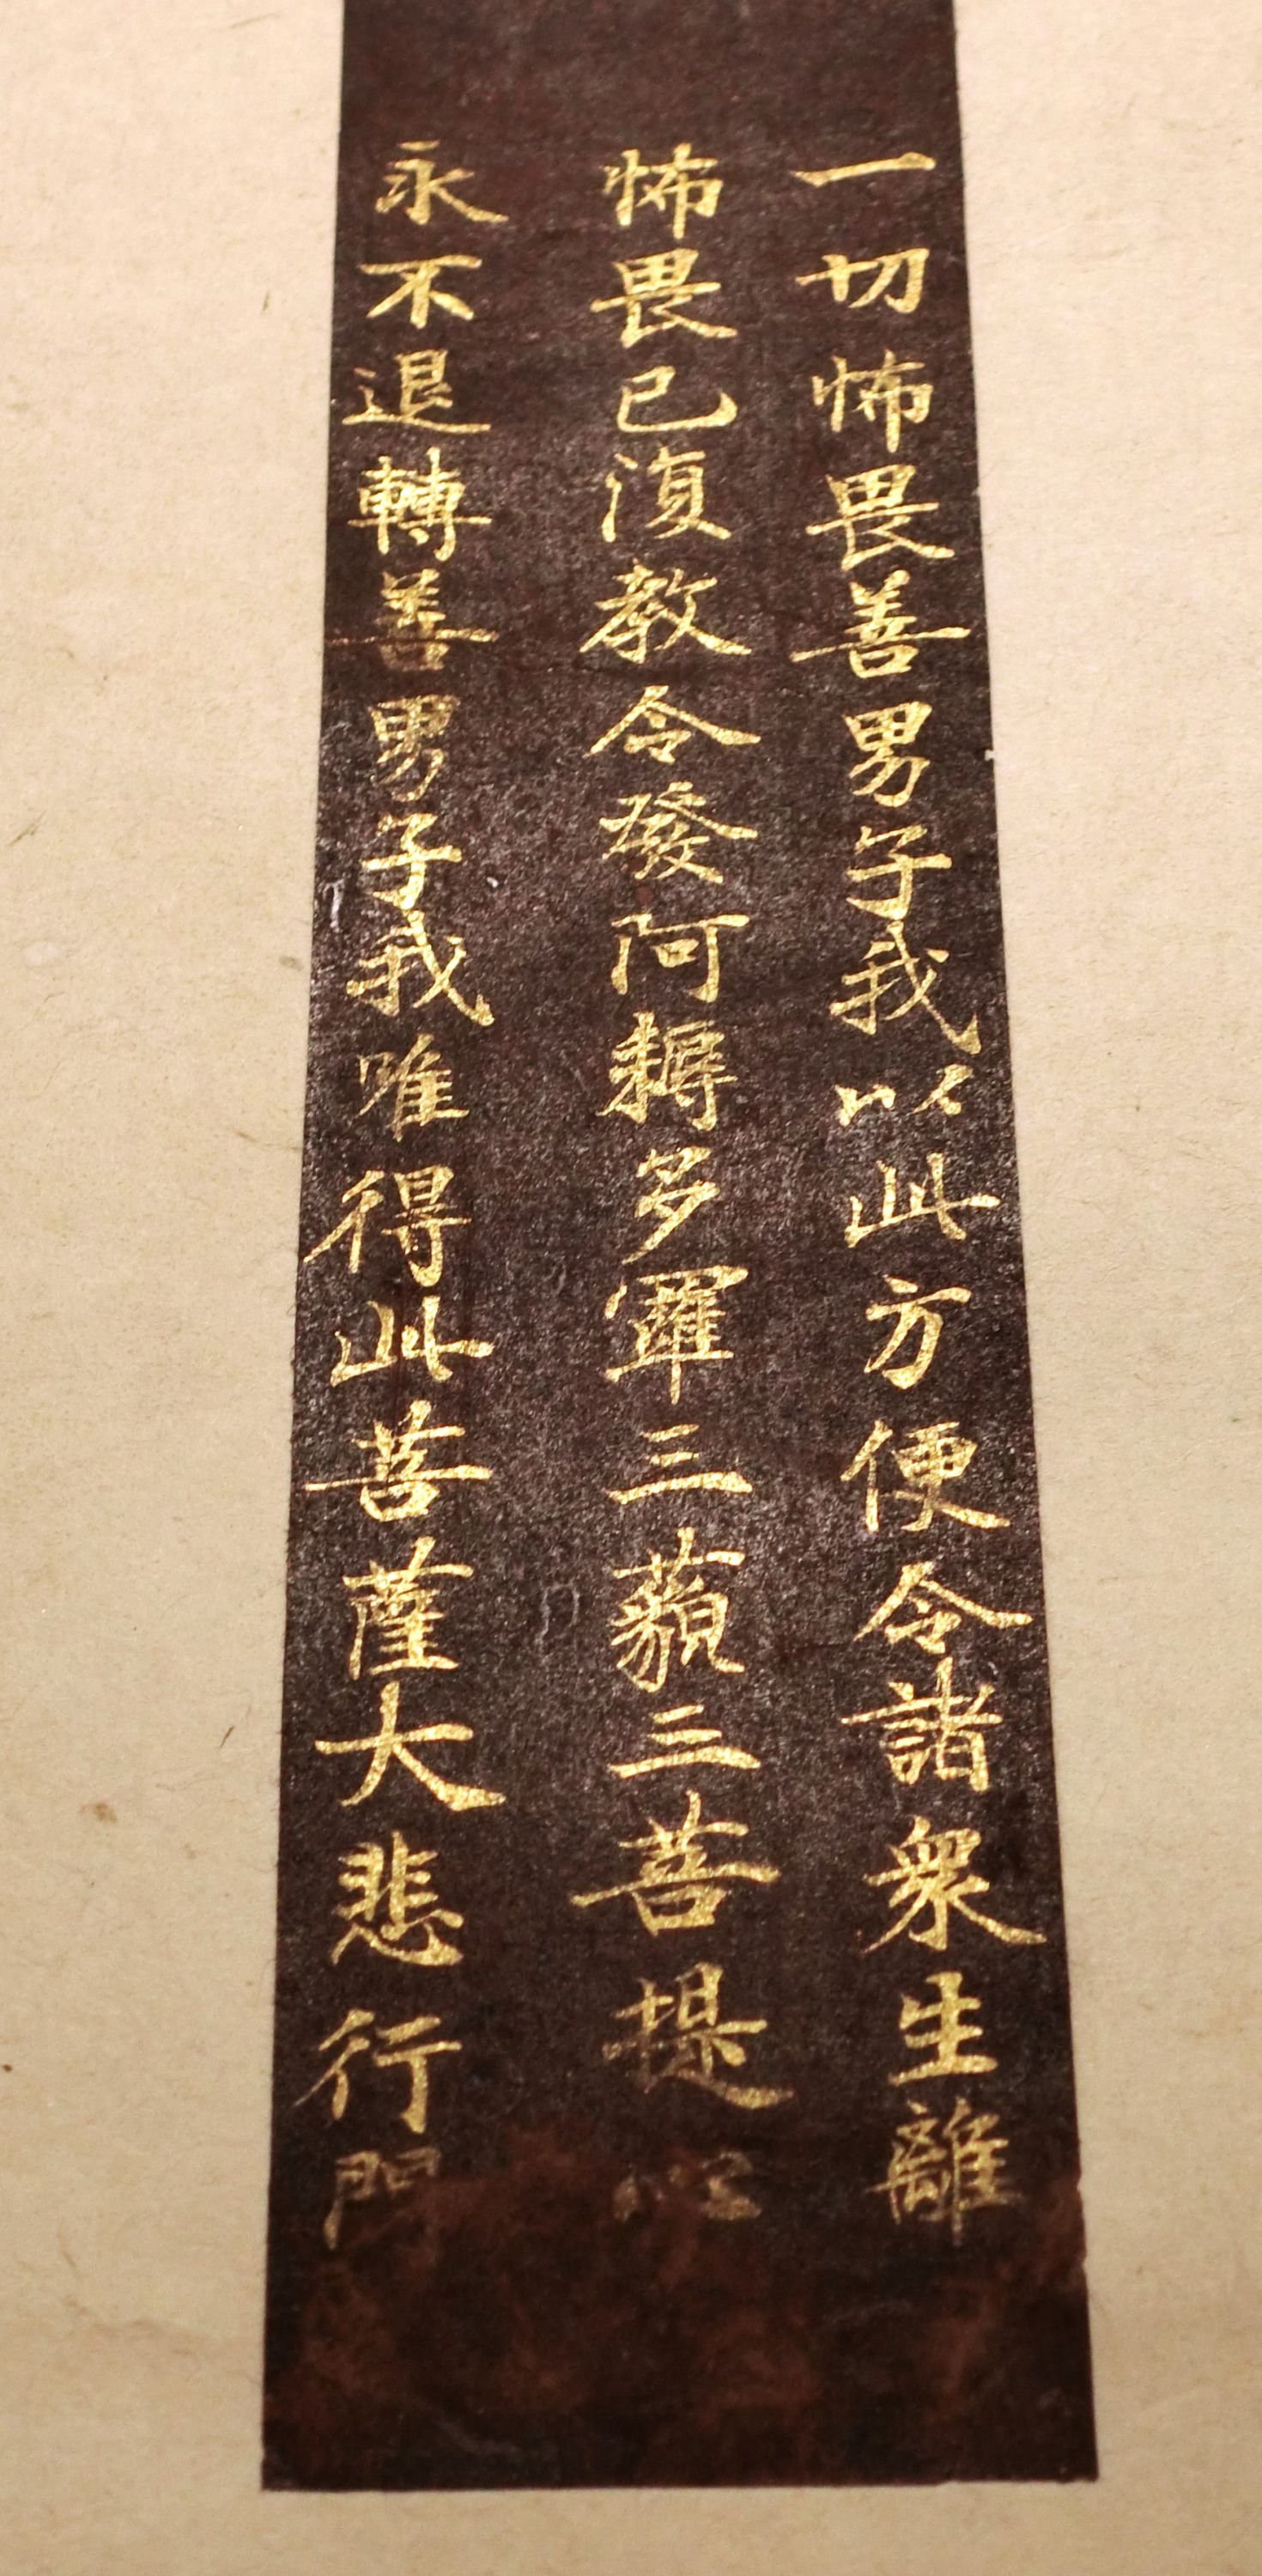 一切怖畏善男子我以此方便令諸眾生離
怖畏已復教令發阿耨多羅三藐三菩提心
永不退轉善男子我唯得此菩薩大悲行門